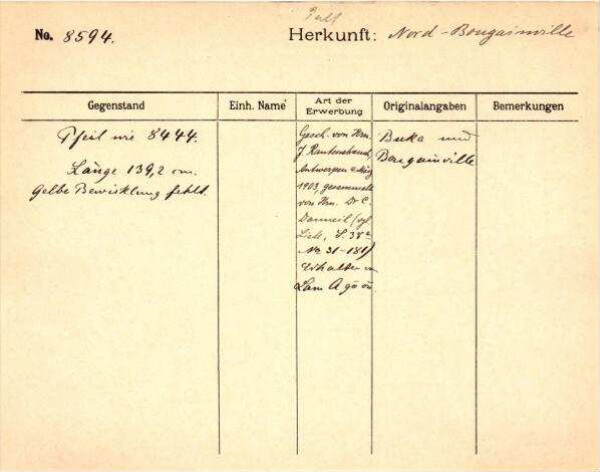 No. 8594.
Herkunft: Nord-Bougainville
Gegenstand
Einh. Name
Art der Erwerbung
Originalangaben
Bemerkungen
Pfeil wie 8444.
Länge 139,2 cm.
Gelbe Bewicklung fehlt.
Gesch. von Hrn.
J. Rautenstrauch,
Antwerpen
1903, gesammelt
von Hrn. Dr C.
Danneil (vgl.
Liste, S. 38a
No 31-181)
Erhalten
Buka und
Bougainville